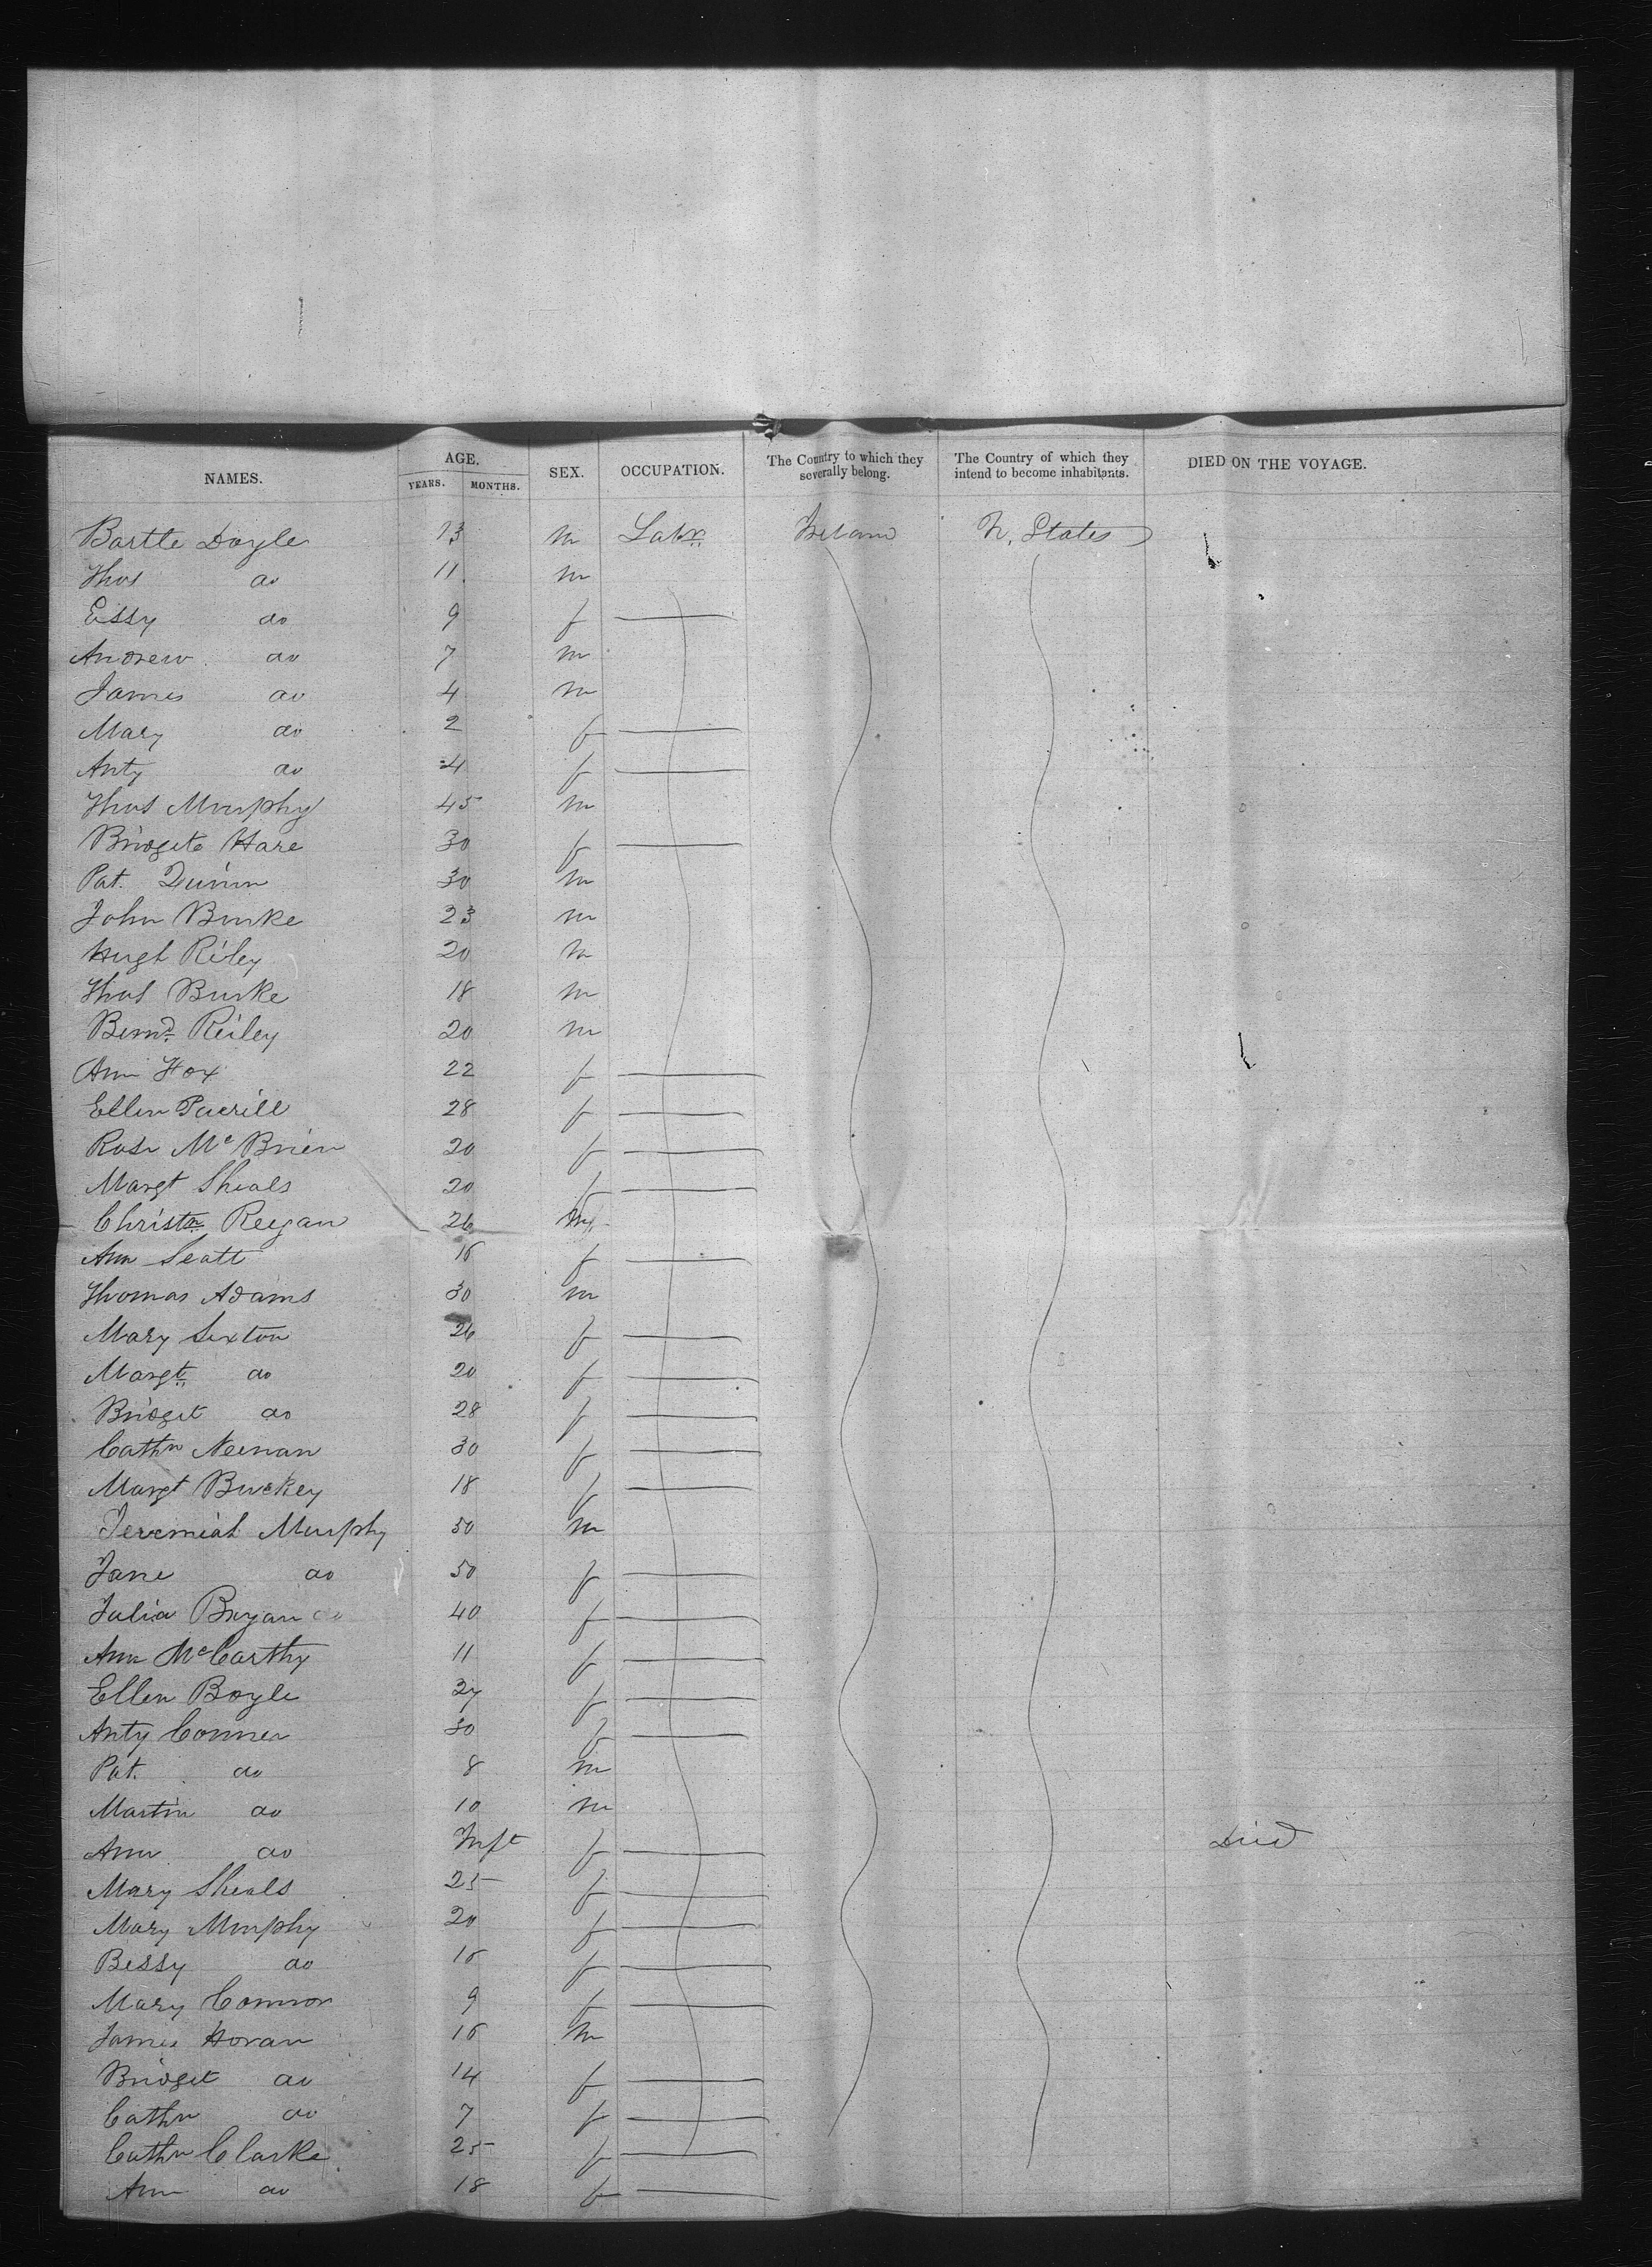 NAMES. AGE. YEARS. MONTHS. SEX. OCCUPATION. The Country to which they severally belong. The Country of which they intend to become inhabitants. DIED ON THE VOYAGE.
Bartle Doyle 13 m Labr. Ireland U. States
Thos do 11 m
Essy do 9 f
Andrew do 7 m
James do 4 m
Mary do 2 f
Anty do 4 f
Thos Murphy 45 m
Bridgete Hare 30 f
Pat. Quinn 30 m
John Burke 23 m
Hugh Riley 20 m
Thos Burke 18 m
Bernd. Reiley 20 m
Ann Fox 22 f
Ellen 28 f
Rose McBrien 20 f
Margt Sheals 20 f
Christr. Reegan 26 m
Ann Scott 16 f
Thomas Adams 30 m
Mary Sexton 26 f
Margt. do 20 f
Bridget do 28 f
Cathn Neenan 30 f
Margt Buckey 18 f
Jeremiah Murphy 50 m
Jane do 50 f
Julia Bryan do 40 f
Ann McCarthy 11 f
Ellen Boyle 27 f
Anty Conner 30 f
Pat. do 8 m
Martin do 10 m
Ann do Inft f Died
Mary Sheals 25 f
Mary Murphy 20 f
Bessy do 16 f
Mary Connor 9 f
James Horan 16 m
Bridget do 14 f
Cathn do 7 f
Cathn Clarke 25 f
Ann do 18 f